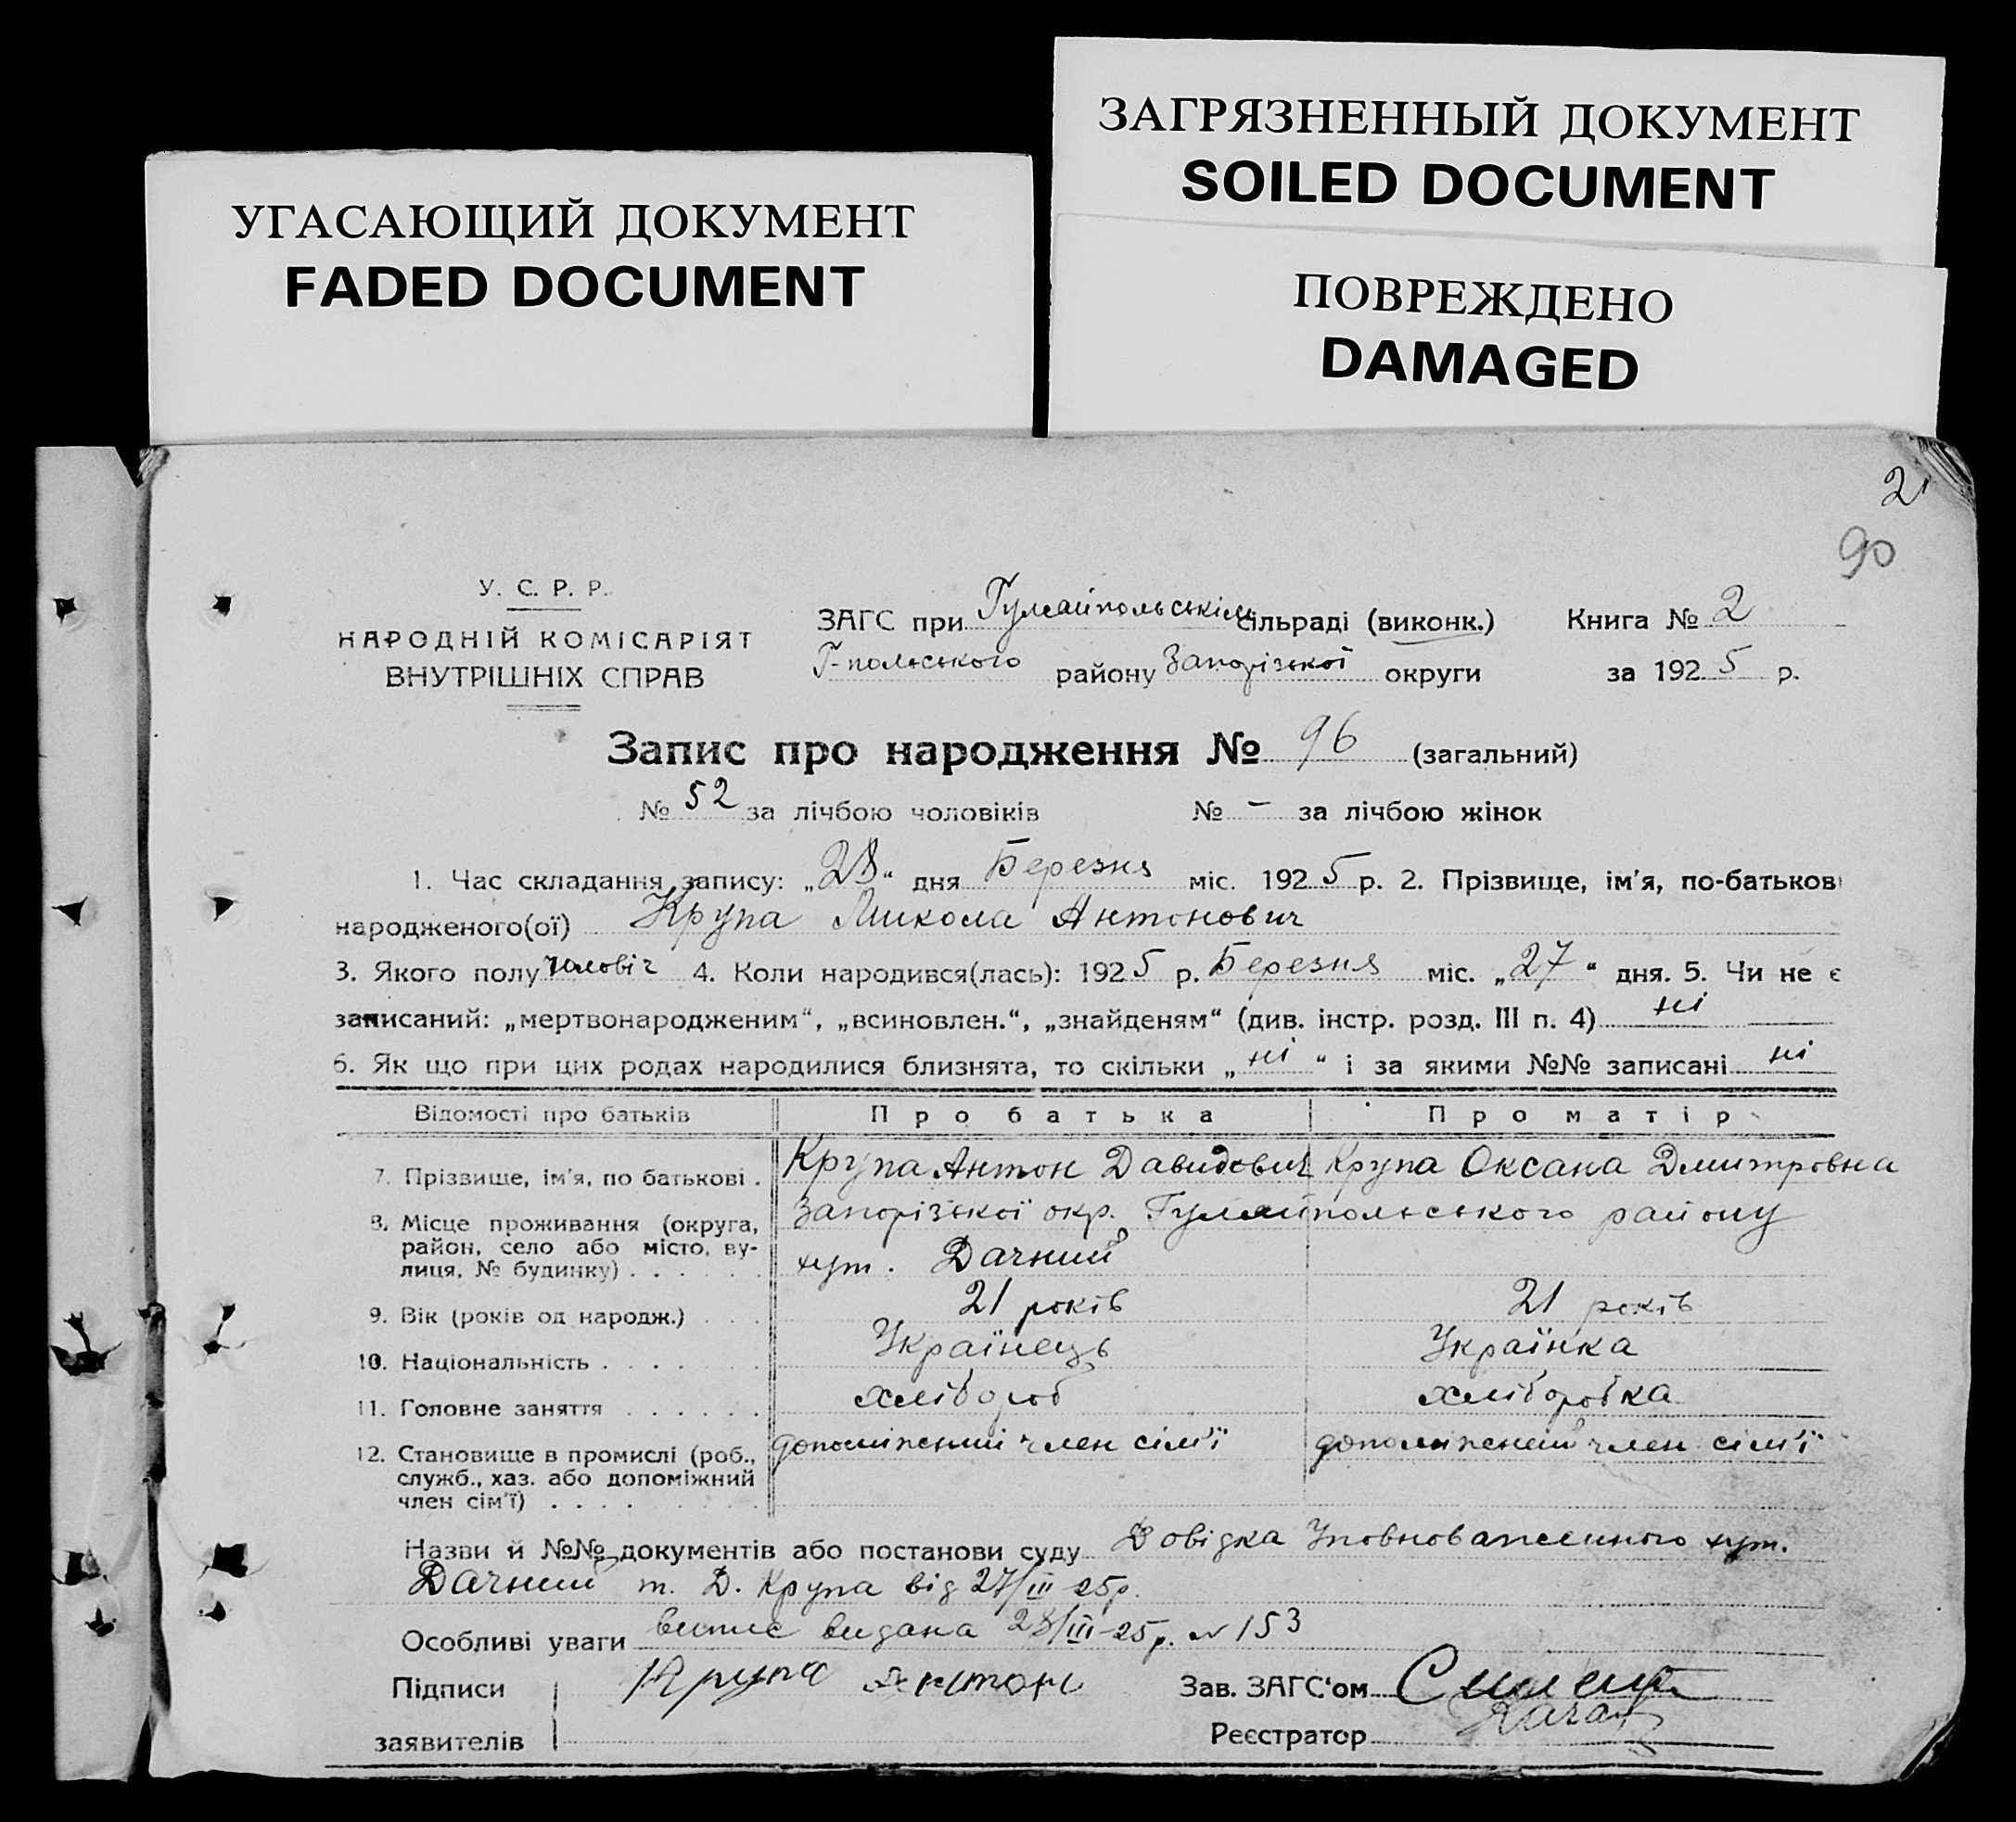 УГАСАЮЩИЙ ДОКУМЕНТ
FADED DOCUMENT
ЗАГРЯЗНЕННЫЙ ДОКУМЕНТ
SOILED DOCUMENT
ПОВРЕЖДЕНО
DAMAGED
2
90
У. С. Р. Р.
НАРОДНІЙ КОМІСАРІЯТ
ВНУТРІШНІХ СПРАВ
ЗАГС при Гуляйпольськім сільраді (виконк.) Книга № 2
Г-польського району Запорізької округи за 1925 р.
Запис про народження № 96 (загальний)
№ 52 за лічбою чоловіків № – за лічбою жінок
1. Час складання запису: „28“ дня Березня міс. 1925 р. 2. Прізвище, ім’я, по-батькові
народженого(ої) Крупа Микола Антонович
3. Якого полу чоловіч 4. Коли народився(лась): 1925 р. Березня міс. „27“ дня. 5. Чи не є
записаний: „мертвонародженим“, „всиновлен.“, „знайденям“ (див. інстр. розд. III п. 4) ні
6. Як що при цих родах народилися близнята, то скільки „ні“ і за якими №№ записані ні
Відомості про батьків Про батька Про матір
7. Прізвище, ім’я, по батькові . Крупа Антон Давидович Крупа Оксана Дмитровна
8. Місце проживання (округа, район, село або місто, вулиця, № будинку) . . . . . . Запорізької окр. Гуляйпольського району
хут. Дачний
9. Вік (років од народж.) . . . 21 років 21 років
10. Національність . . . . Українець Українка
11. Головне заняття . . . . . . хлібороб хліборобка
12. Становище в промислі (роб., служб., хаз. або допоміжний член сім’ї) . . . . допоміжний член сім’ї допоміжний член сім’ї
Назви й №№ документів або постанови суду Довідка Уповноваженного хут.
Дачний т. Д. Крупа від 27/III-25р.
Особливі уваги випис видана 28/III-25р. № 153
Підписи Крупа Антон Зав. ЗАГС‘ом
заявителів Реєстратор